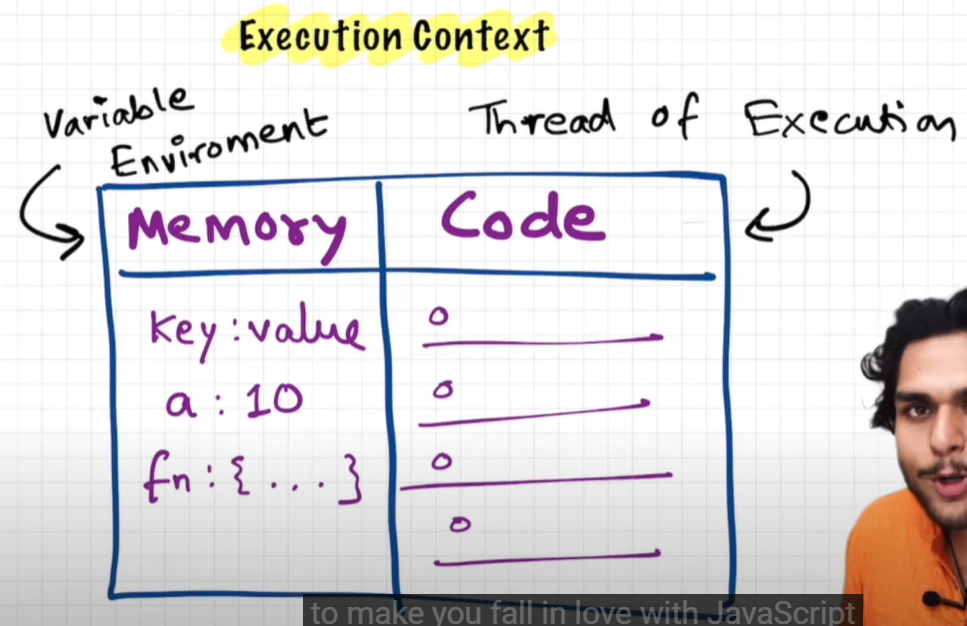 Execution Context
Variable
Enviroment
Thread of Execution
Memory
Code
key : value
a : 10
fn : { . . . }
to make you fall in love with JavaScript